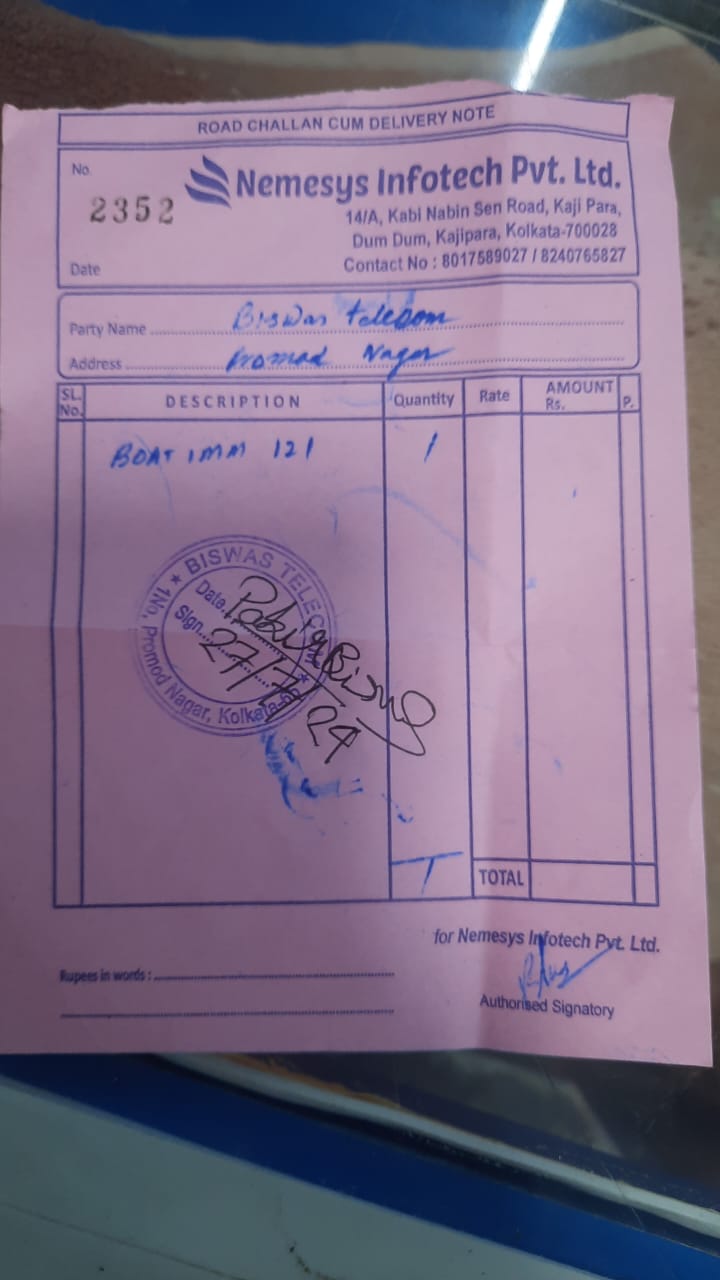 ROAD CHALLAN CUM DELIVERY NOTE
No.
2352
Nemesys Infotech Pvt. Ltd.
14/A, Kabi Nabin Sen Road, Kaji Para,
Dum Dum, Kajipara, Kolkata-700028
Contact No : 8017589027 / 8240765827
Date
Party Name Biswas Telecom
Address Promod Nagar
SL. No. DESCRIPTION Quantity Rate AMOUNT Rs. P.
BOAT 1MM 121 1
BISWAS TELECOM
1No, Promod Nagar, Kolkata-
Date
Sign
27/7/24
1
TOTAL
for Nemesys Infotech Pvt. Ltd.
Rupees in words :
Authorised Signatory